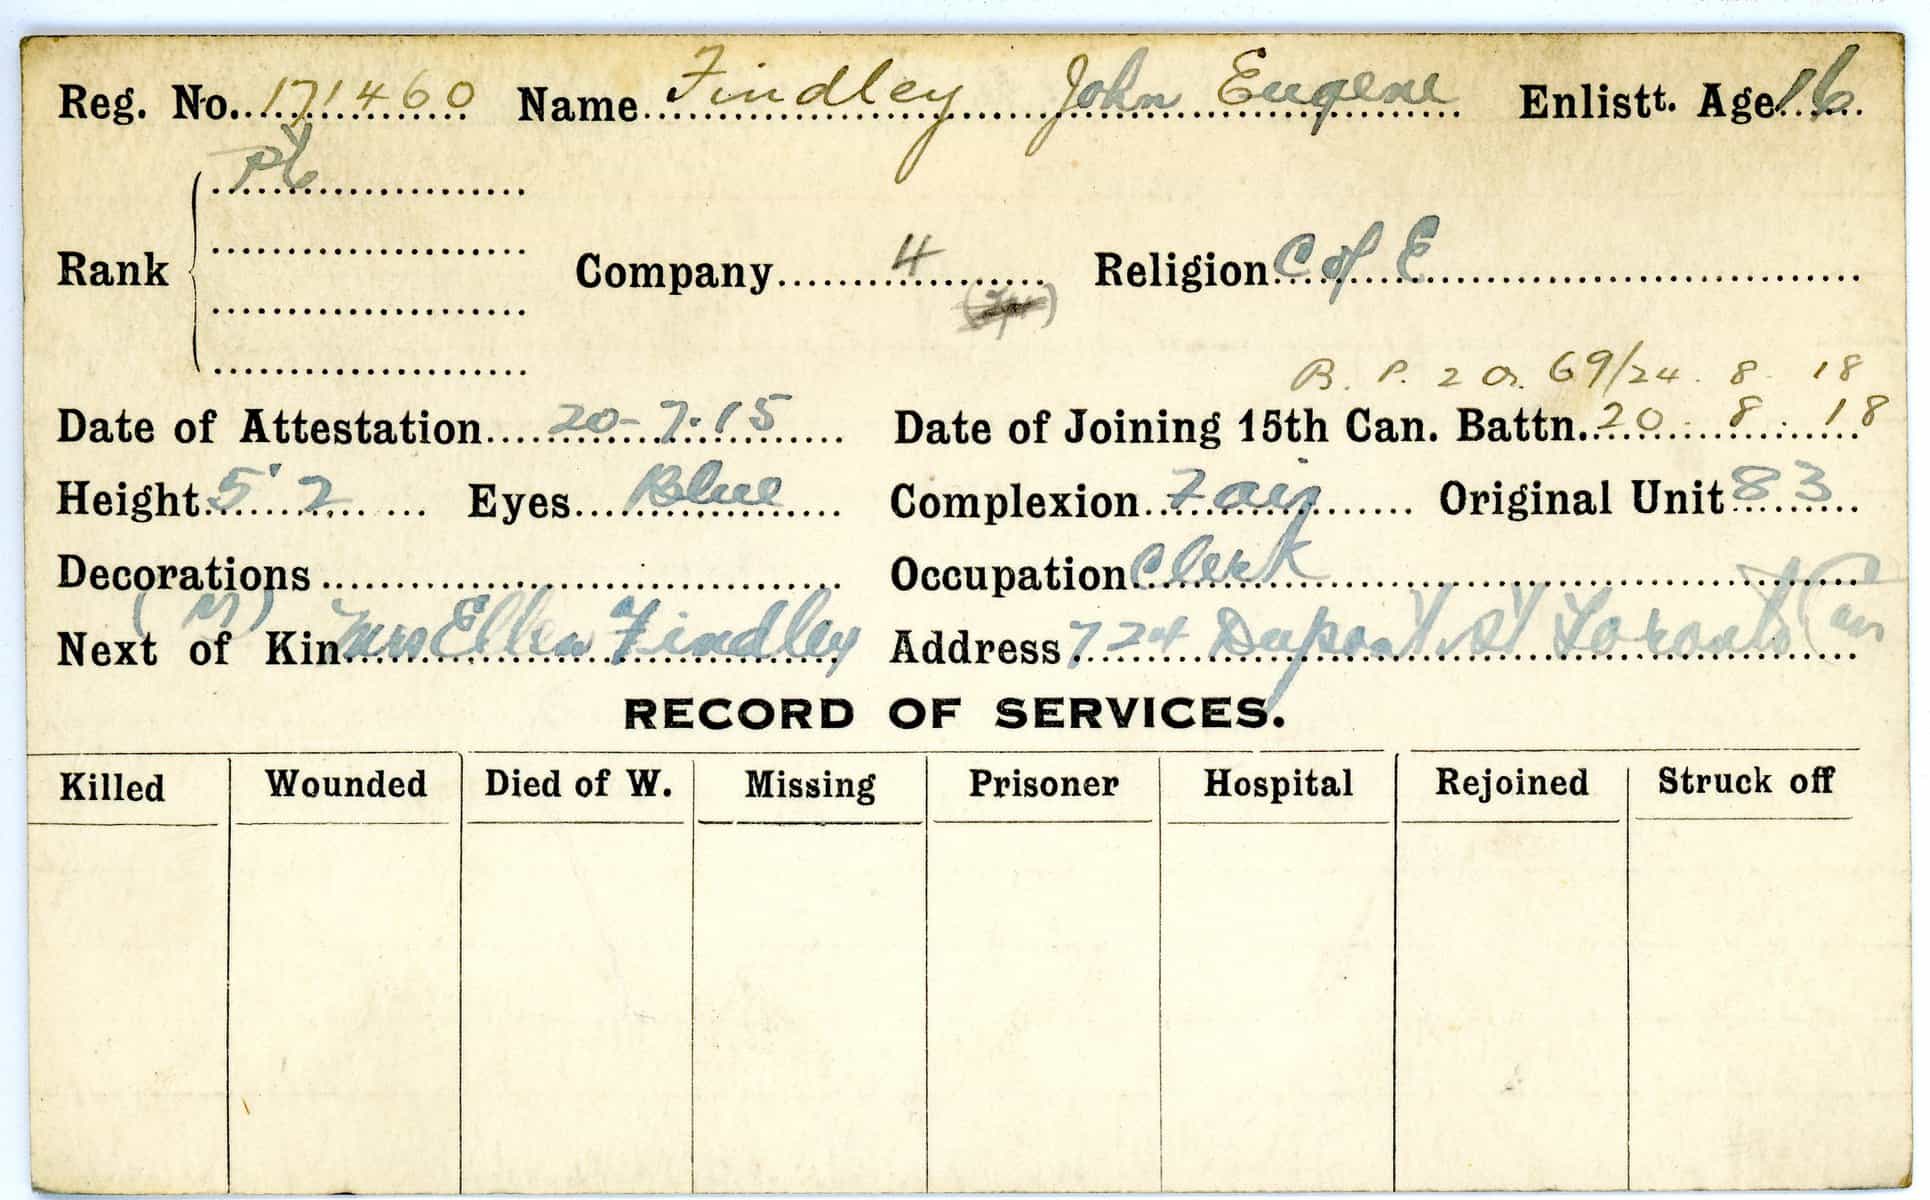 Reg. No. 171460 Name Findley John Eugene Enlistt. Age 16
Pte
Rank Company 4 Religion C of E
B. P. 2 O. 69/24. 8. 18
Date of Attestation 20-7-15 Date of Joining 15th Can. Battn. 20 8 18
Height 5' 2 Eyes Blue Complexion Fair Original Unit 83
Decorations Occupation Clerk
(M)
Next of Kin Mrs Ellen Findley Address 724 Dupont St Toronto Can
RECORD OF SERVICES.
Killed Wounded Died of W. Missing Prisoner Hospital Rejoined Struck off